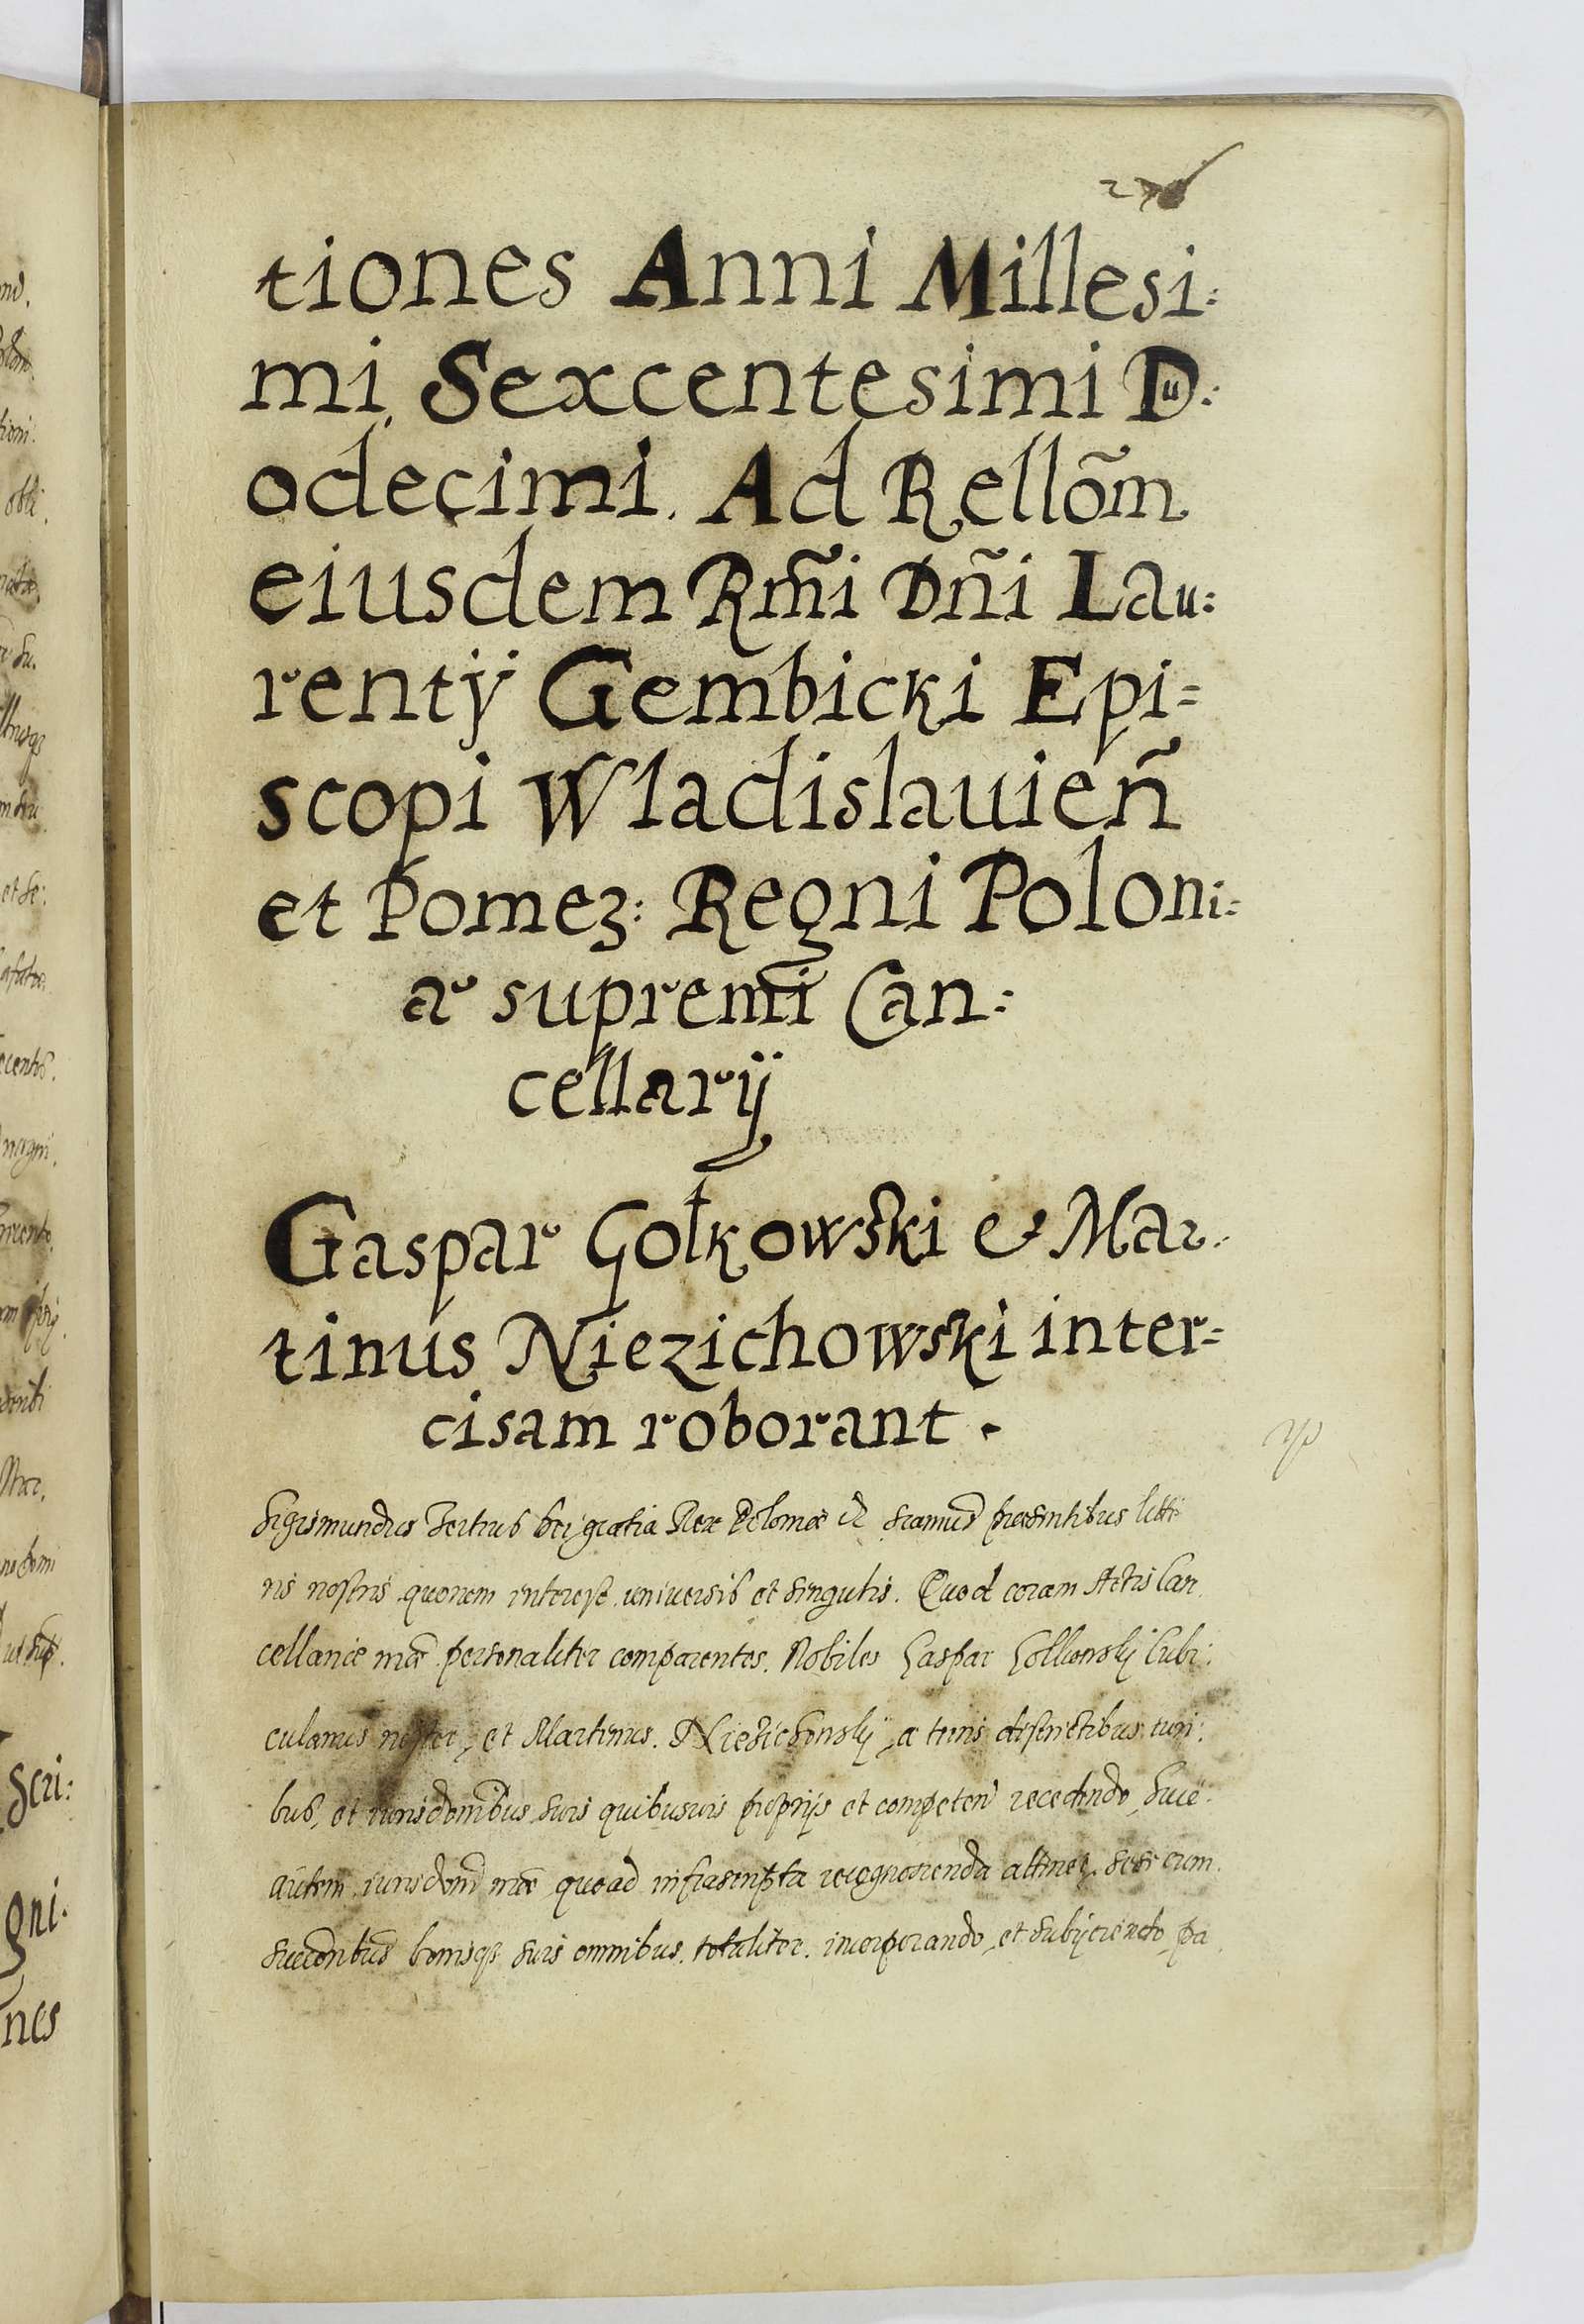 tiones Anni Millesi:
mi Sexcentesimi Du:
odecimi. Ad Rellõm
eiusdem Rm̃i Dñi Lau:
rentÿ Gembicki Epi=
scopi Wladislauieñ
et Pomez: Regni Poloni:
ar supremi Can:
cellarij
Gaspar Gołkowski et Mar:
tinus Niezichowski inter=
cisam roborant.
Sigismundus Tertius Dei gratia Rex Poloniæ et significamus præsentibus litte
ris nostris quorum interest universis et singulis. Quod coram Actis Can
cellariæ nr̃æ personaliter comparentes. Nobiles Gaspar Golkowskÿ Cubi:
cularius noster, et Martinus. Niezichowskÿ, a terris districtibus iuri:
bus, et iurisdonibus suis quibusuis proprÿs et competen recedendo, Suce
autem iurisdoni nræ quoad infrascripta recognoscenda attinet sese cum
succoribus bonisqz suis omnibus. totaliter. incorporando, et subÿciendo, pa